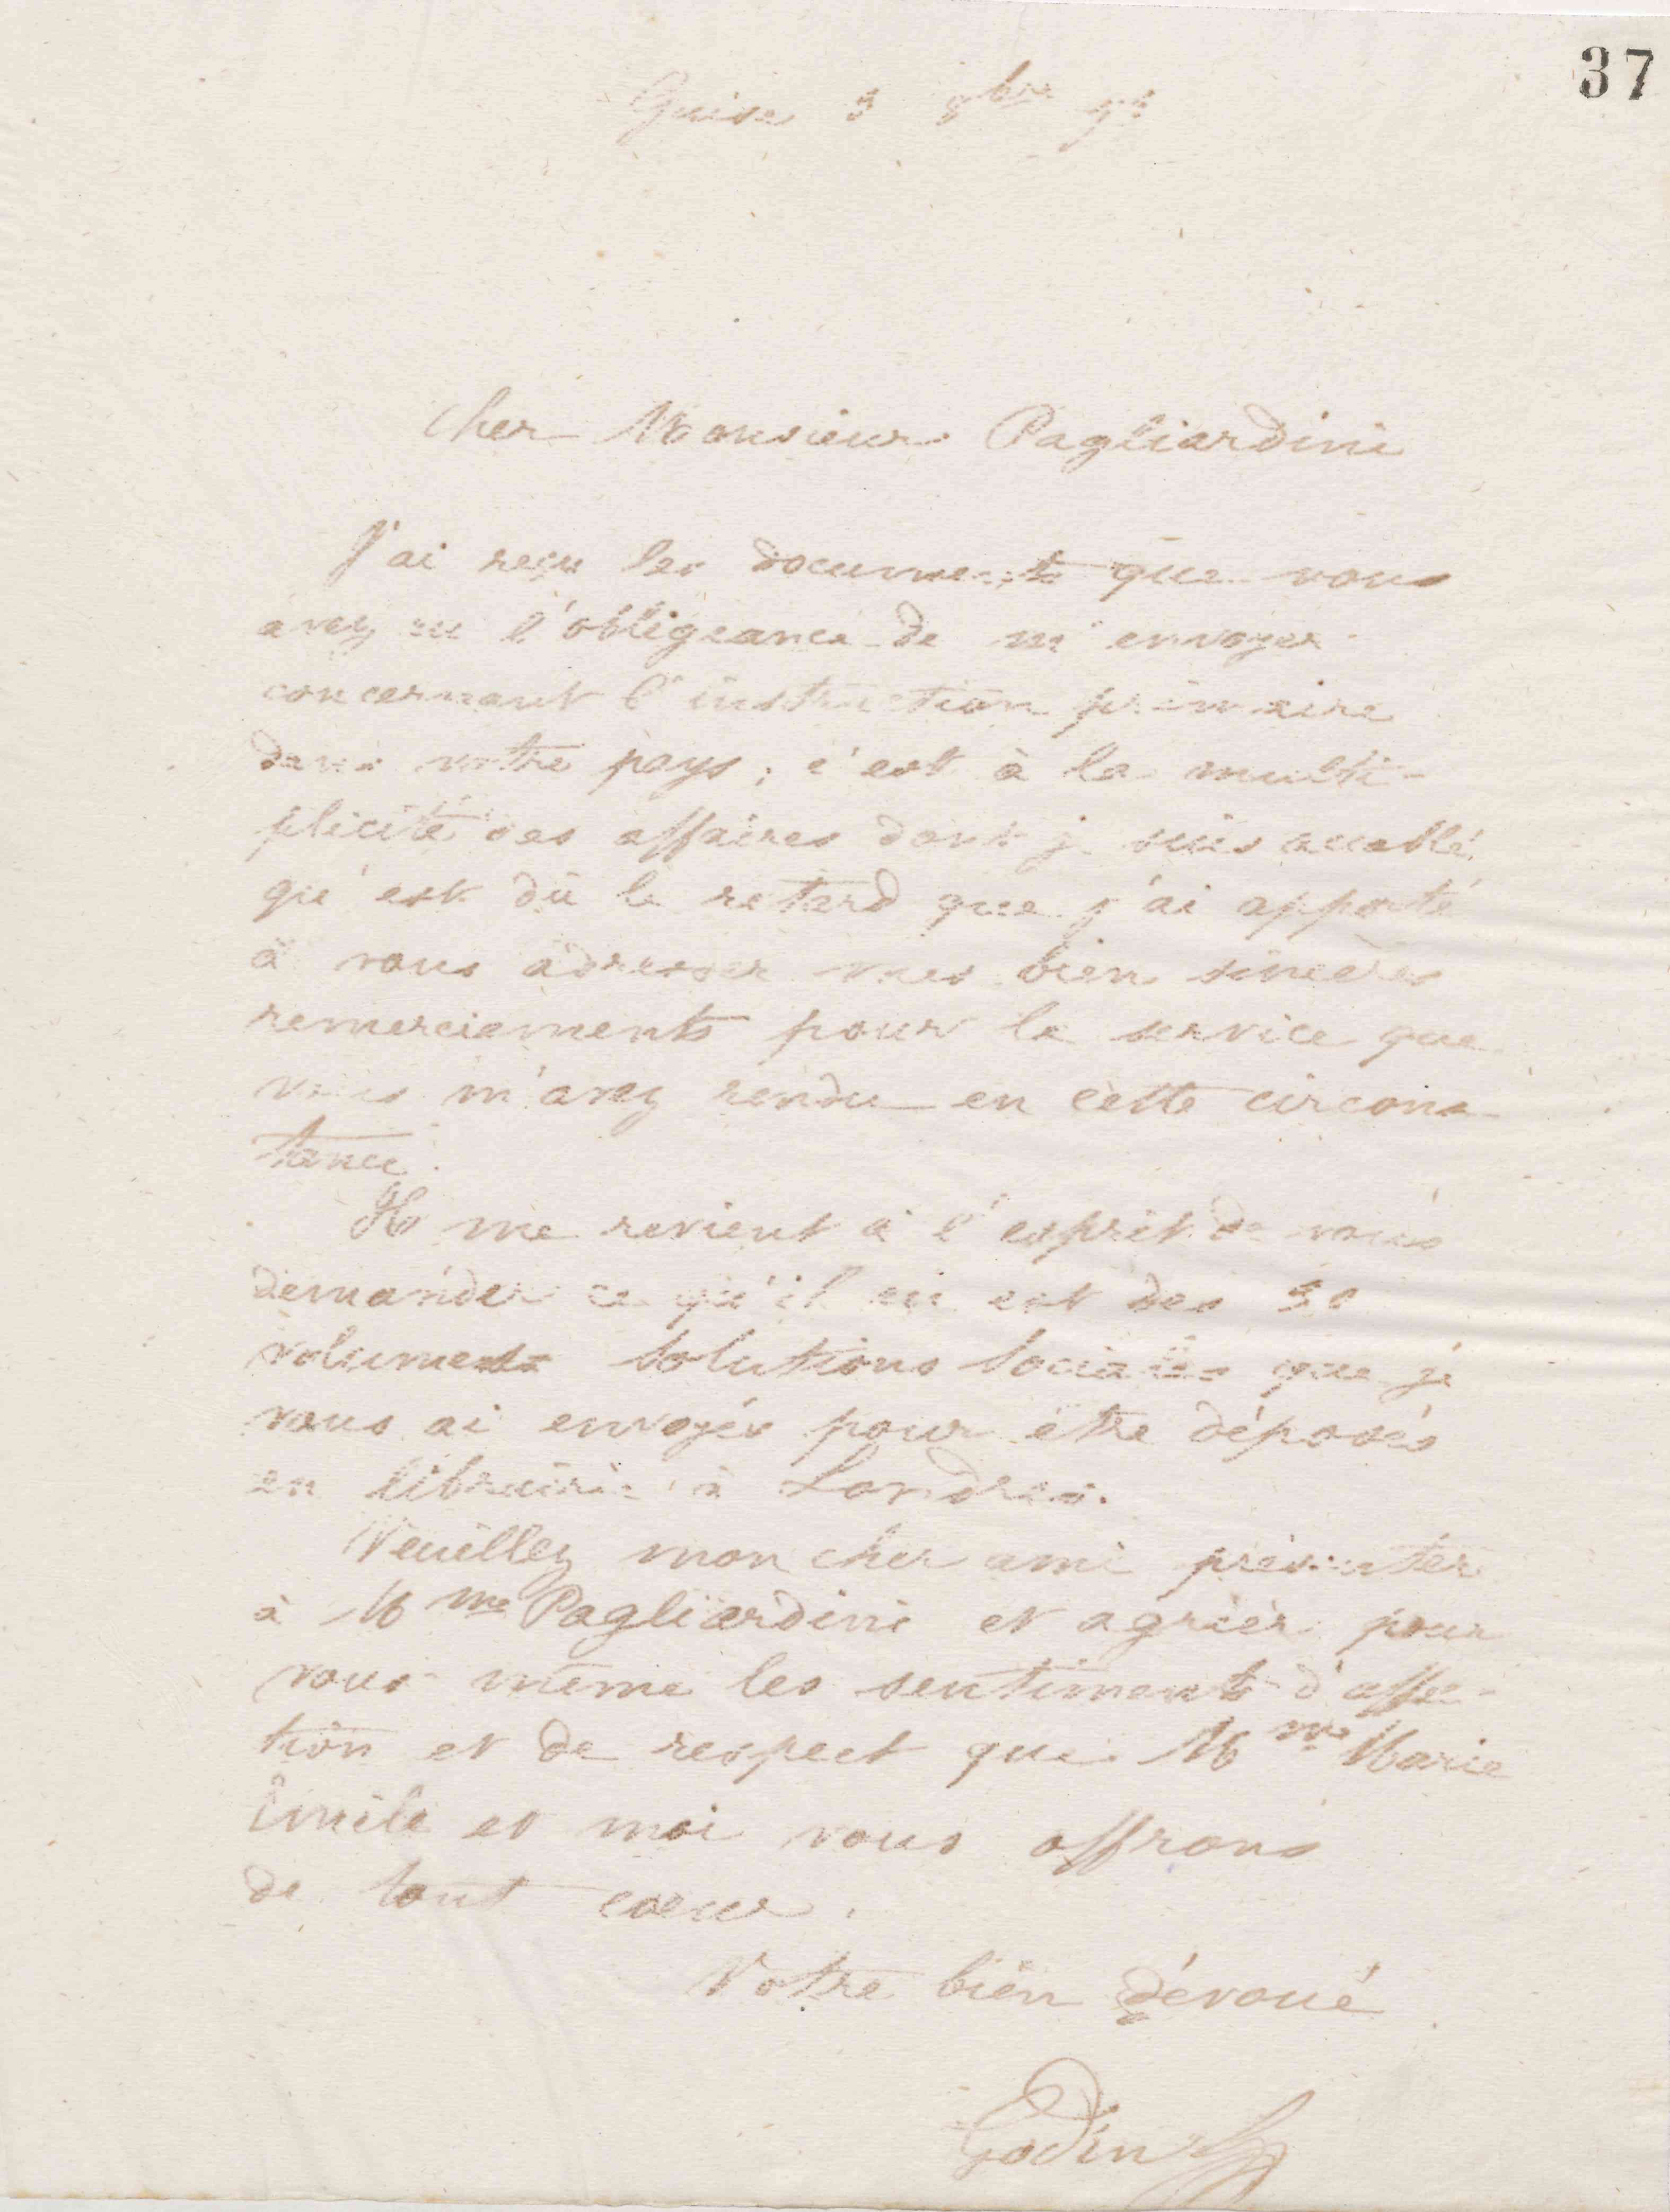 37
Guise 8bre
Cher Monsieur Pagliardini
J'ai reçu les documents que vous
avez eu l'obligeance de m'envoyer
concernant l'instruction primaire
dans votre pays ; c'est à la multi-
plicité des affaires dont je suis accablé
qu'est dû le retard que j'ai apporté
à vous adresser mes bien sincères
remerciements pour le service que
vous m'avez rendu en cette circons-
tance.
Il me revient à l'esprit de vous
demander ce qu'il en est des
volumes Solutions Sociales que je
vous ai envoyés pour être déposés
en librairie à Londres.
Veuillez mon cher ami présenter
à Mme Pagliardini et agréer pour
vous même les sentiments d'affec-
tion et de respect que Mme Marie
Émile et moi vous offrons
de tout coeur.
Votre bien dévoué
Godin